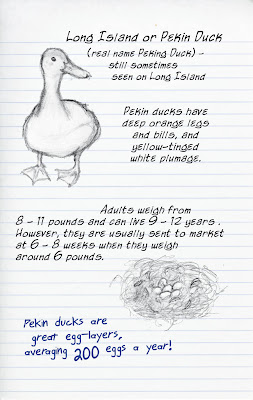 Long Island or Pekin Duck
(real name Peking Duck) -
still sometimes
seen on Long Island
Pekin ducks have
deep orange legs
and bills, and
yellow-tinged
white plumage.
Adults weigh from
8 - 11 pounds and can live 9 - 12 years .
However, they are usually sent to market
at 6 - 8 weeks when they weigh
around 6 pounds.
Pekin ducks are
great egg-layers,
averaging 200 eggs a year!